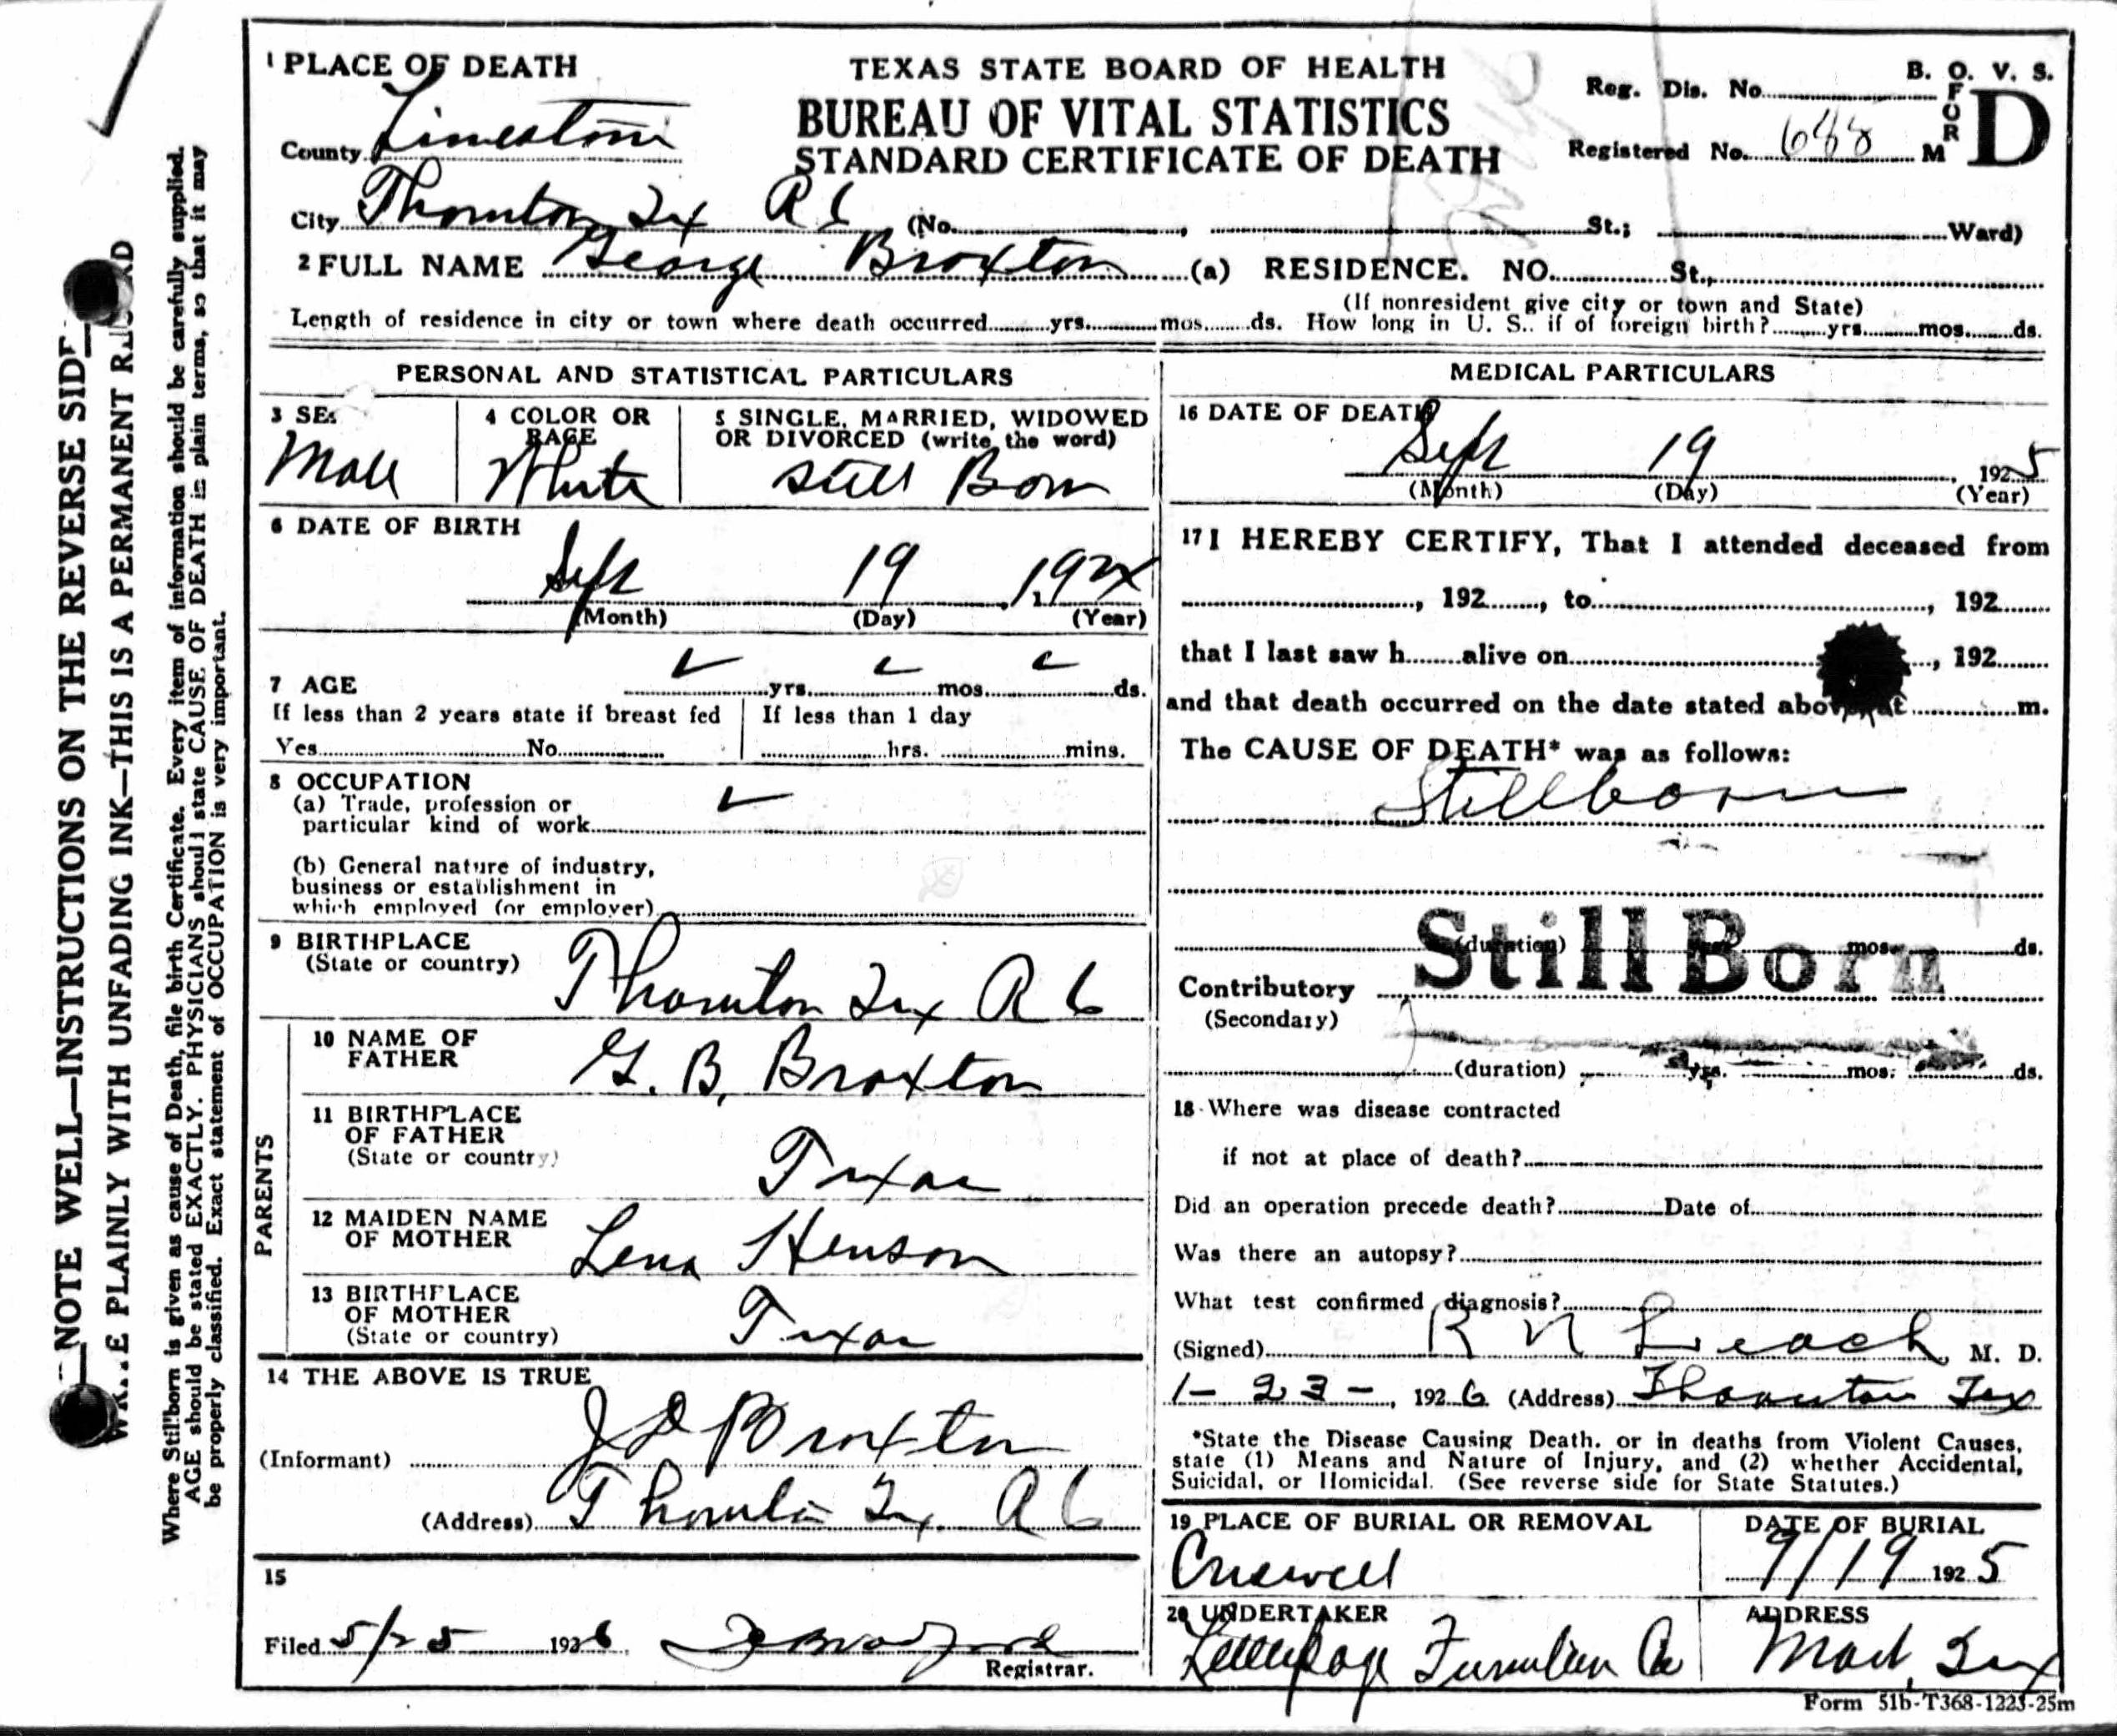 1 PLACE OF DEATH
TEXAS STATE BOARD OF HEALTH
BUREAU OF VITAL STATISTICS
STANDARD CERTIFICATE OF DEATH
B. O. V. S.
FORM D
Reg. Dis. No.
Registered No. 688
County Limestone
City Thornton Tex R 6 (No. , St.; Ward)
2 FULL NAME George Broxton (a) RESIDENCE. NO. St.,
(If nonresident give city or town and State)
Length of residence in city or town where death occurred yrs. mos. ds. How long in U. S., if of foreign birth? yrs. mos. ds.
PERSONAL AND STATISTICAL PARTICULARS
3 SEX
Male
4 COLOR OR RACE
White
5 SINGLE, MARRIED, WIDOWED
OR DIVORCED (write the word)
Still Born
6 DATE OF BIRTH
Sept 19
(Month) (Day) (Year)
7 AGE yrs. mos. ds.
If less than 2 years state if breast fed
Yes No
If less than 1 day
hrs. mins.
8 OCCUPATION
(a) Trade, profession or
particular kind of work
(b) General nature of industry,
business or establishment in
which employed (or employer)
9 BIRTHPLACE
(State or country)
Thornton Tex R 6
PARENTS
10 NAME OF
FATHER
G. B. Broxton
11 BIRTHPLACE
OF FATHER
(State or country)
Texas
12 MAIDEN NAME
OF MOTHER
Lena Henson
13 BIRTHPLACE
OF MOTHER
(State or country)
Texas
14 THE ABOVE IS TRUE
(Informant) J D Broxton
(Address) Thornton Tex. R 6
15
Filed 5/25 1926
Registrar.
MEDICAL PARTICULARS
16 DATE OF DEATH
Sept 19 , 1925
(Month) (Day) (Year)
17 I HEREBY CERTIFY, That I attended deceased from
, 192 , to , 192
that I last saw h alive on , 192
and that death occurred on the date stated above, at m.
The CAUSE OF DEATH* was as follows:
Stillborn
Still Born
(duration) yrs. mos. ds.
Contributory
(Secondary)
(duration) yrs. mos. ds.
18 Where was disease contracted
if not at place of death?
Did an operation precede death? Date of
Was there an autopsy?
What test confirmed diagnosis?
(Signed) R N Leach, M. D.
1-23-, 1926 (Address) Thornton Tex
*State the Disease Causing Death, or in deaths from Violent Causes,
state (1) Means and Nature of Injury, and (2) whether Accidental,
Suicidal, or Homicidal. (See reverse side for State Statutes.)
19 PLACE OF BURIAL OR REMOVAL
Criswell
DATE OF BURIAL
9/19 1925
20 UNDERTAKER
Furniture Co
ADDRESS
Mart, Tex
Form 51b-T368-1223-25m
NOTE WELL—INSTRUCTIONS ON THE REVERSE SIDE
WRITE PLAINLY WITH UNFADING INK—THIS IS A PERMANENT RECORD
Where Stillborn is given as cause of Death, file birth Certificate. Every item of information should be carefully supplied.
AGE should be stated EXACTLY. PHYSICIANS should state CAUSE OF DEATH in plain terms, so that it may
be properly classified. Exact statement of OCCUPATION is very important.